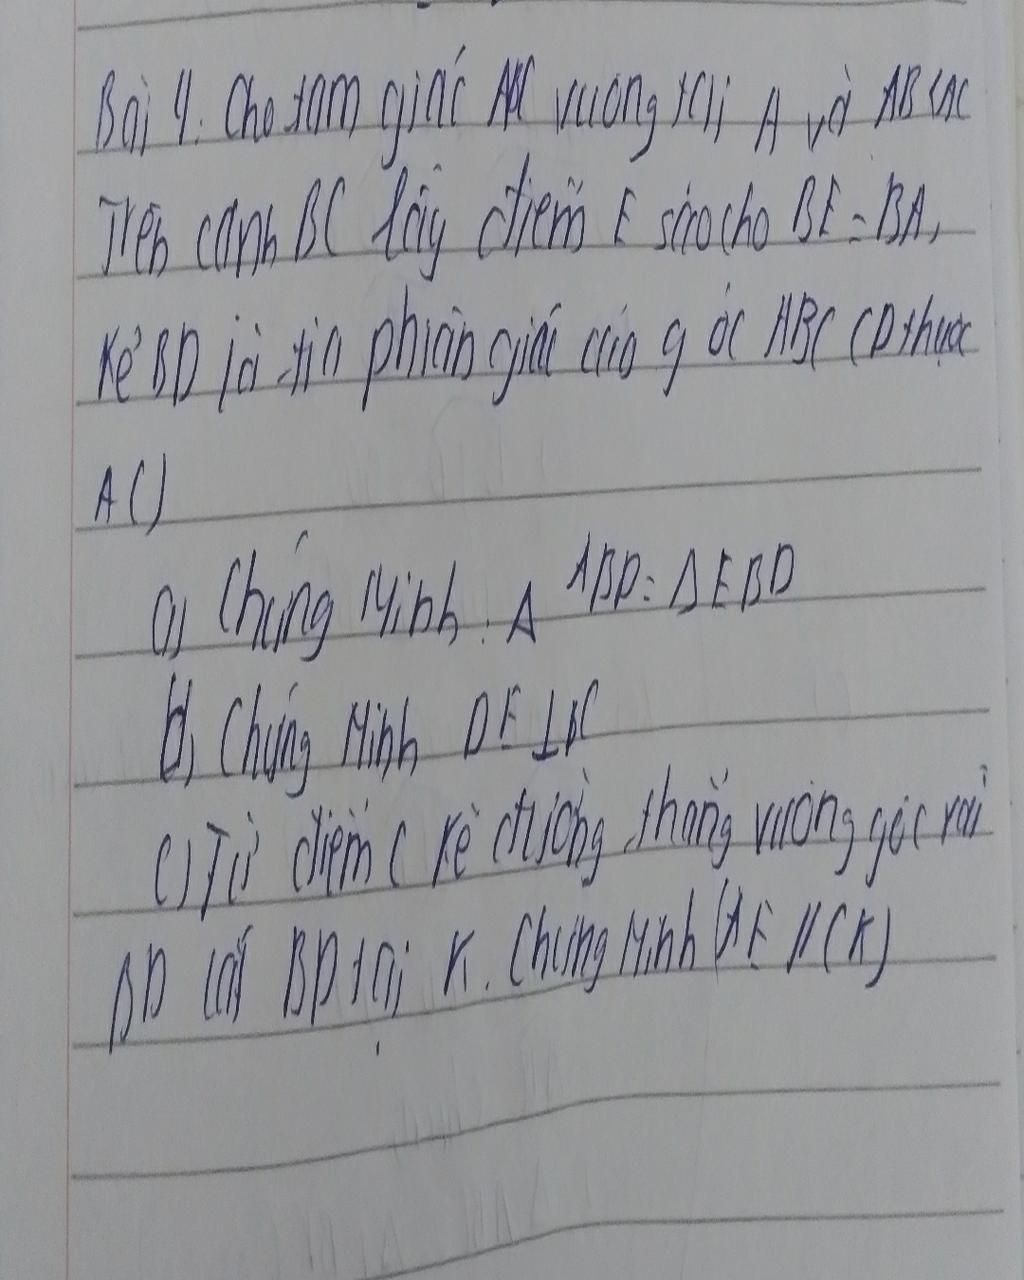 Bài 4: Cho tam giác ABC vuông tại A và AB<AC
Trên cạnh BC lấy điểm E sao cho BE = BA,
Kẻ BD là tia phân giác của góc ABC (D thuộc
AC)
a) Chứng Minh: Δ ABD = Δ EBD
b) Chứng Minh DE ⊥ BC
c) Từ điểm C kẻ đường thẳng vuông góc với
BD cắt BD tại K. Chứng Minh (AE // CK)